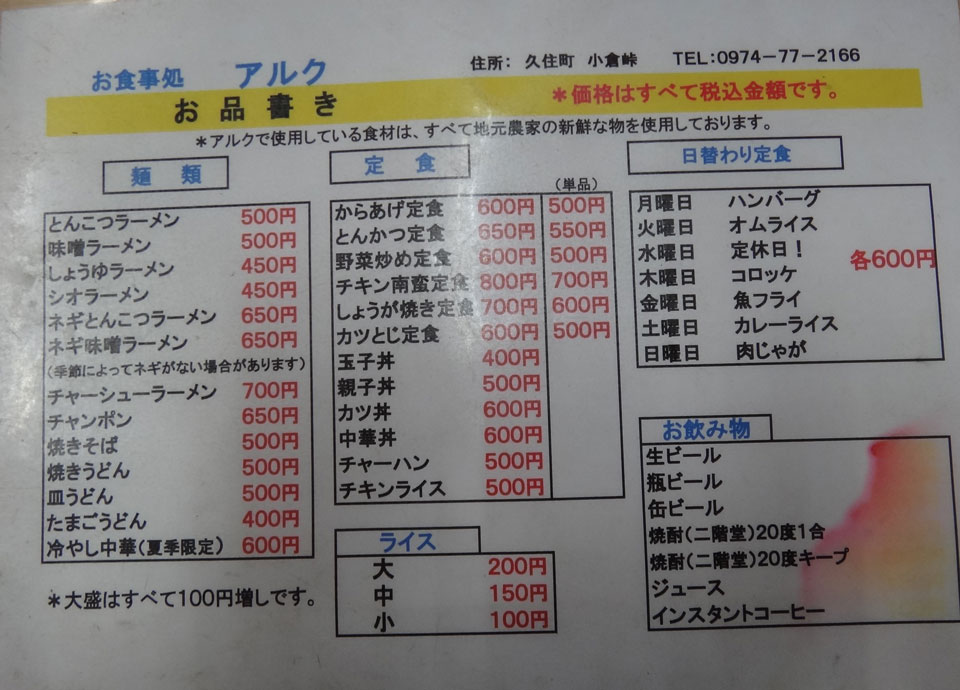 お食事処 アルク 住所: 久住町 小倉峠 TEL:0974-77-2166
お品書き *価格はすべて税込金額です。
*アルクで使用している食材は、すべて地元農家の新鮮な物を使用しております。
麺類
とんこつラーメン 500円
味噌ラーメン 500円
しょうゆラーメン 450円
シオラーメン 450円
ネギとんこつラーメン 650円
ネギ味噌ラーメン 650円
(季節によってネギがない場合があります)
チャーシューラーメン 700円
チャンポン 650円
焼きそば 500円
焼きうどん 500円
皿うどん 500円
たまごうどん 400円
冷やし中華(夏季限定) 600円
*大盛はすべて100円増しです。
定食
(単品)
からあげ定食 600円 500円
とんかつ定食 650円 550円
野菜炒め定食 600円 500円
チキン南蛮定食 800円 700円
しょうが焼き定食 700円 600円
カツとじ定食 600円 500円
玉子丼 400円
親子丼 500円
カツ丼 600円
中華丼 600円
チャーハン 500円
チキンライス 500円
ライス
大 200円
中 150円
小 100円
日替わり定食
月曜日 ハンバーグ
火曜日 オムライス
水曜日 定休日! 各600円
木曜日 コロッケ
金曜日 魚フライ
土曜日 カレーライス
日曜日 肉じゃが
お飲み物
生ビール
瓶ビール
缶ビール
焼酎(二階堂)20度1合
焼酎(二階堂)20度キープ
ジュース
インスタントコーヒー